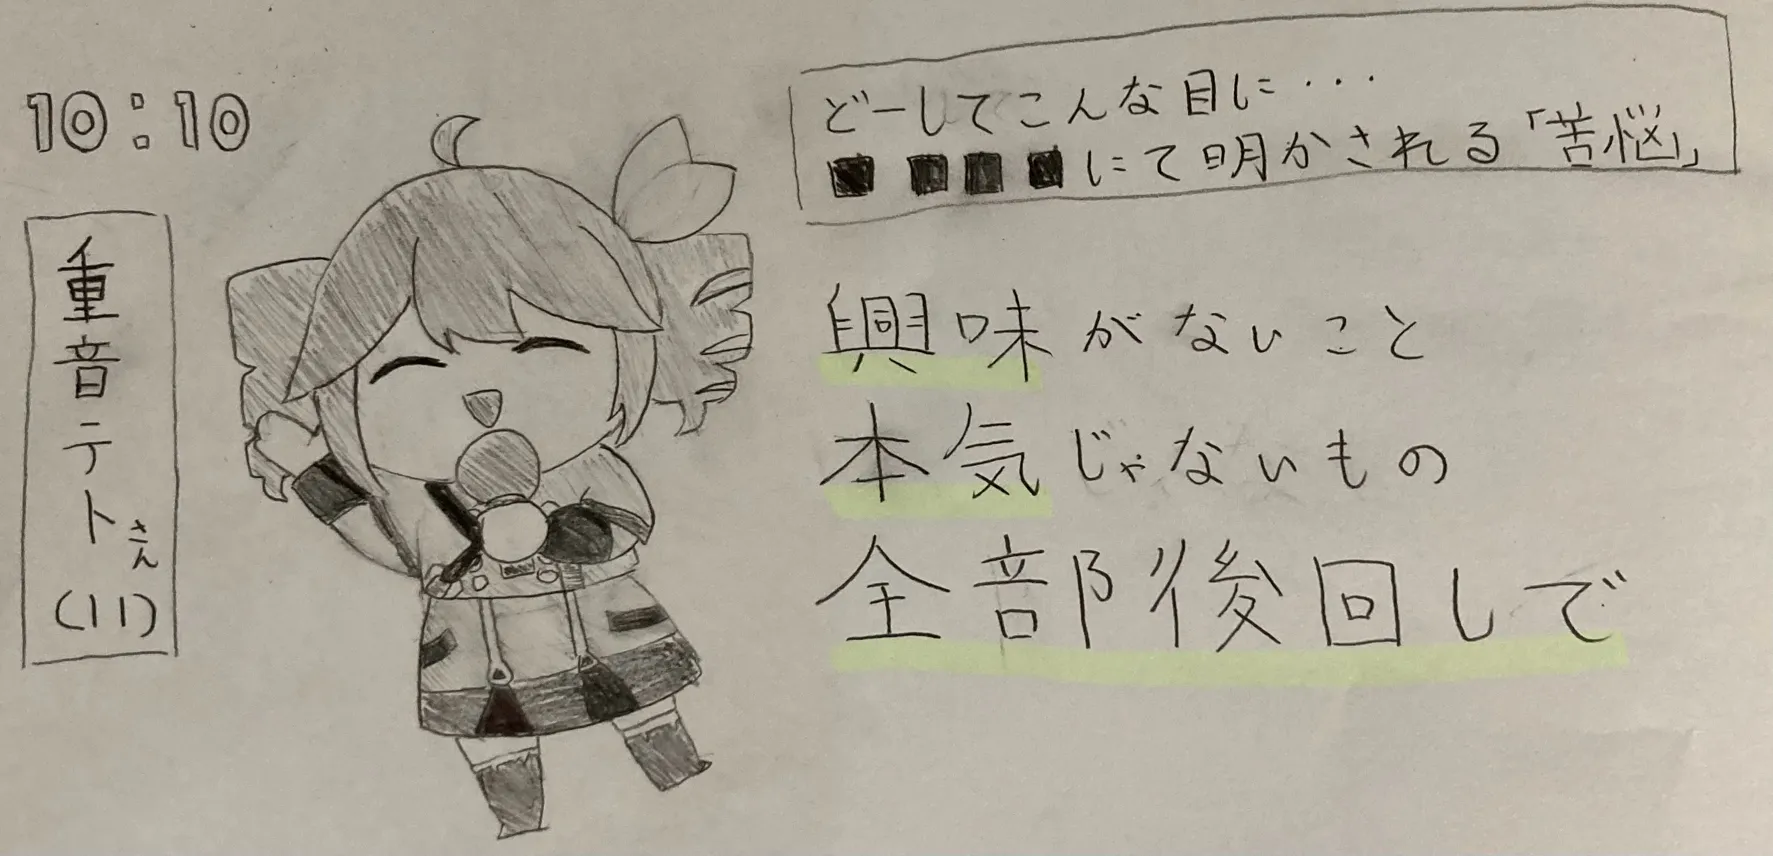 10:10
どーしてこんな目に・・・
■ ■■■にて明かされる「苦悩」
重音テトさん(11)
興味がないこと
本気じゃないもの
全部後回しで